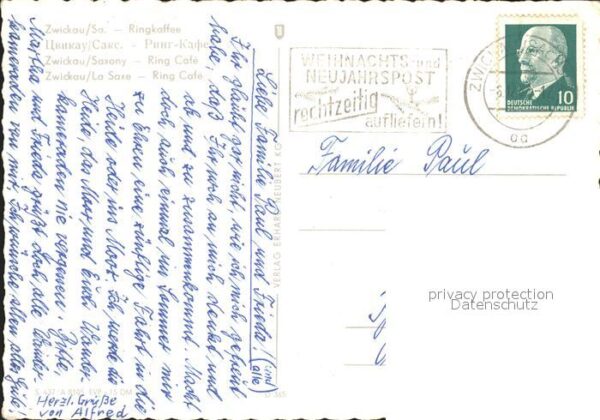 Zwickau/Sa. - Ringkaffee
Цвикау/Сакс. - Ринг-Кафе
Zwickau/Saxony - Ring Café
Zwickau/La Saxe - Ring Café
WEIHNACHTS- und
NEUJAHRSPOST
rechtzeitig
aufliefern!
ZWICK
DEUTSCHE
DEMOKRATISCHE REPUBLIK
10
Familie Paul
VERLAG ERHARD NEUBERT KG
Liebe Familie Paul und Frieda! (und alle)
Ihr glaubt gar nicht, wie ich mich gefreut
habe, daß Ihr noch an mich denkt und
ab und zu zusammenkommt. Macht
doch auch einmal im Sommer mit
zu Euch eine zünftige Fahrt in die
Heide oder ins Moor. Ich werde die
Heide, das Moor und Euch Wander-
kameraden nie vergessen. Grüße
Martha und Frieda grüßt doch alle Wander-
kameraden von mir. Ich wünsche allen alles Gute!
Herzl. Grüße
von Alfred
privacy protection
Datenschutz